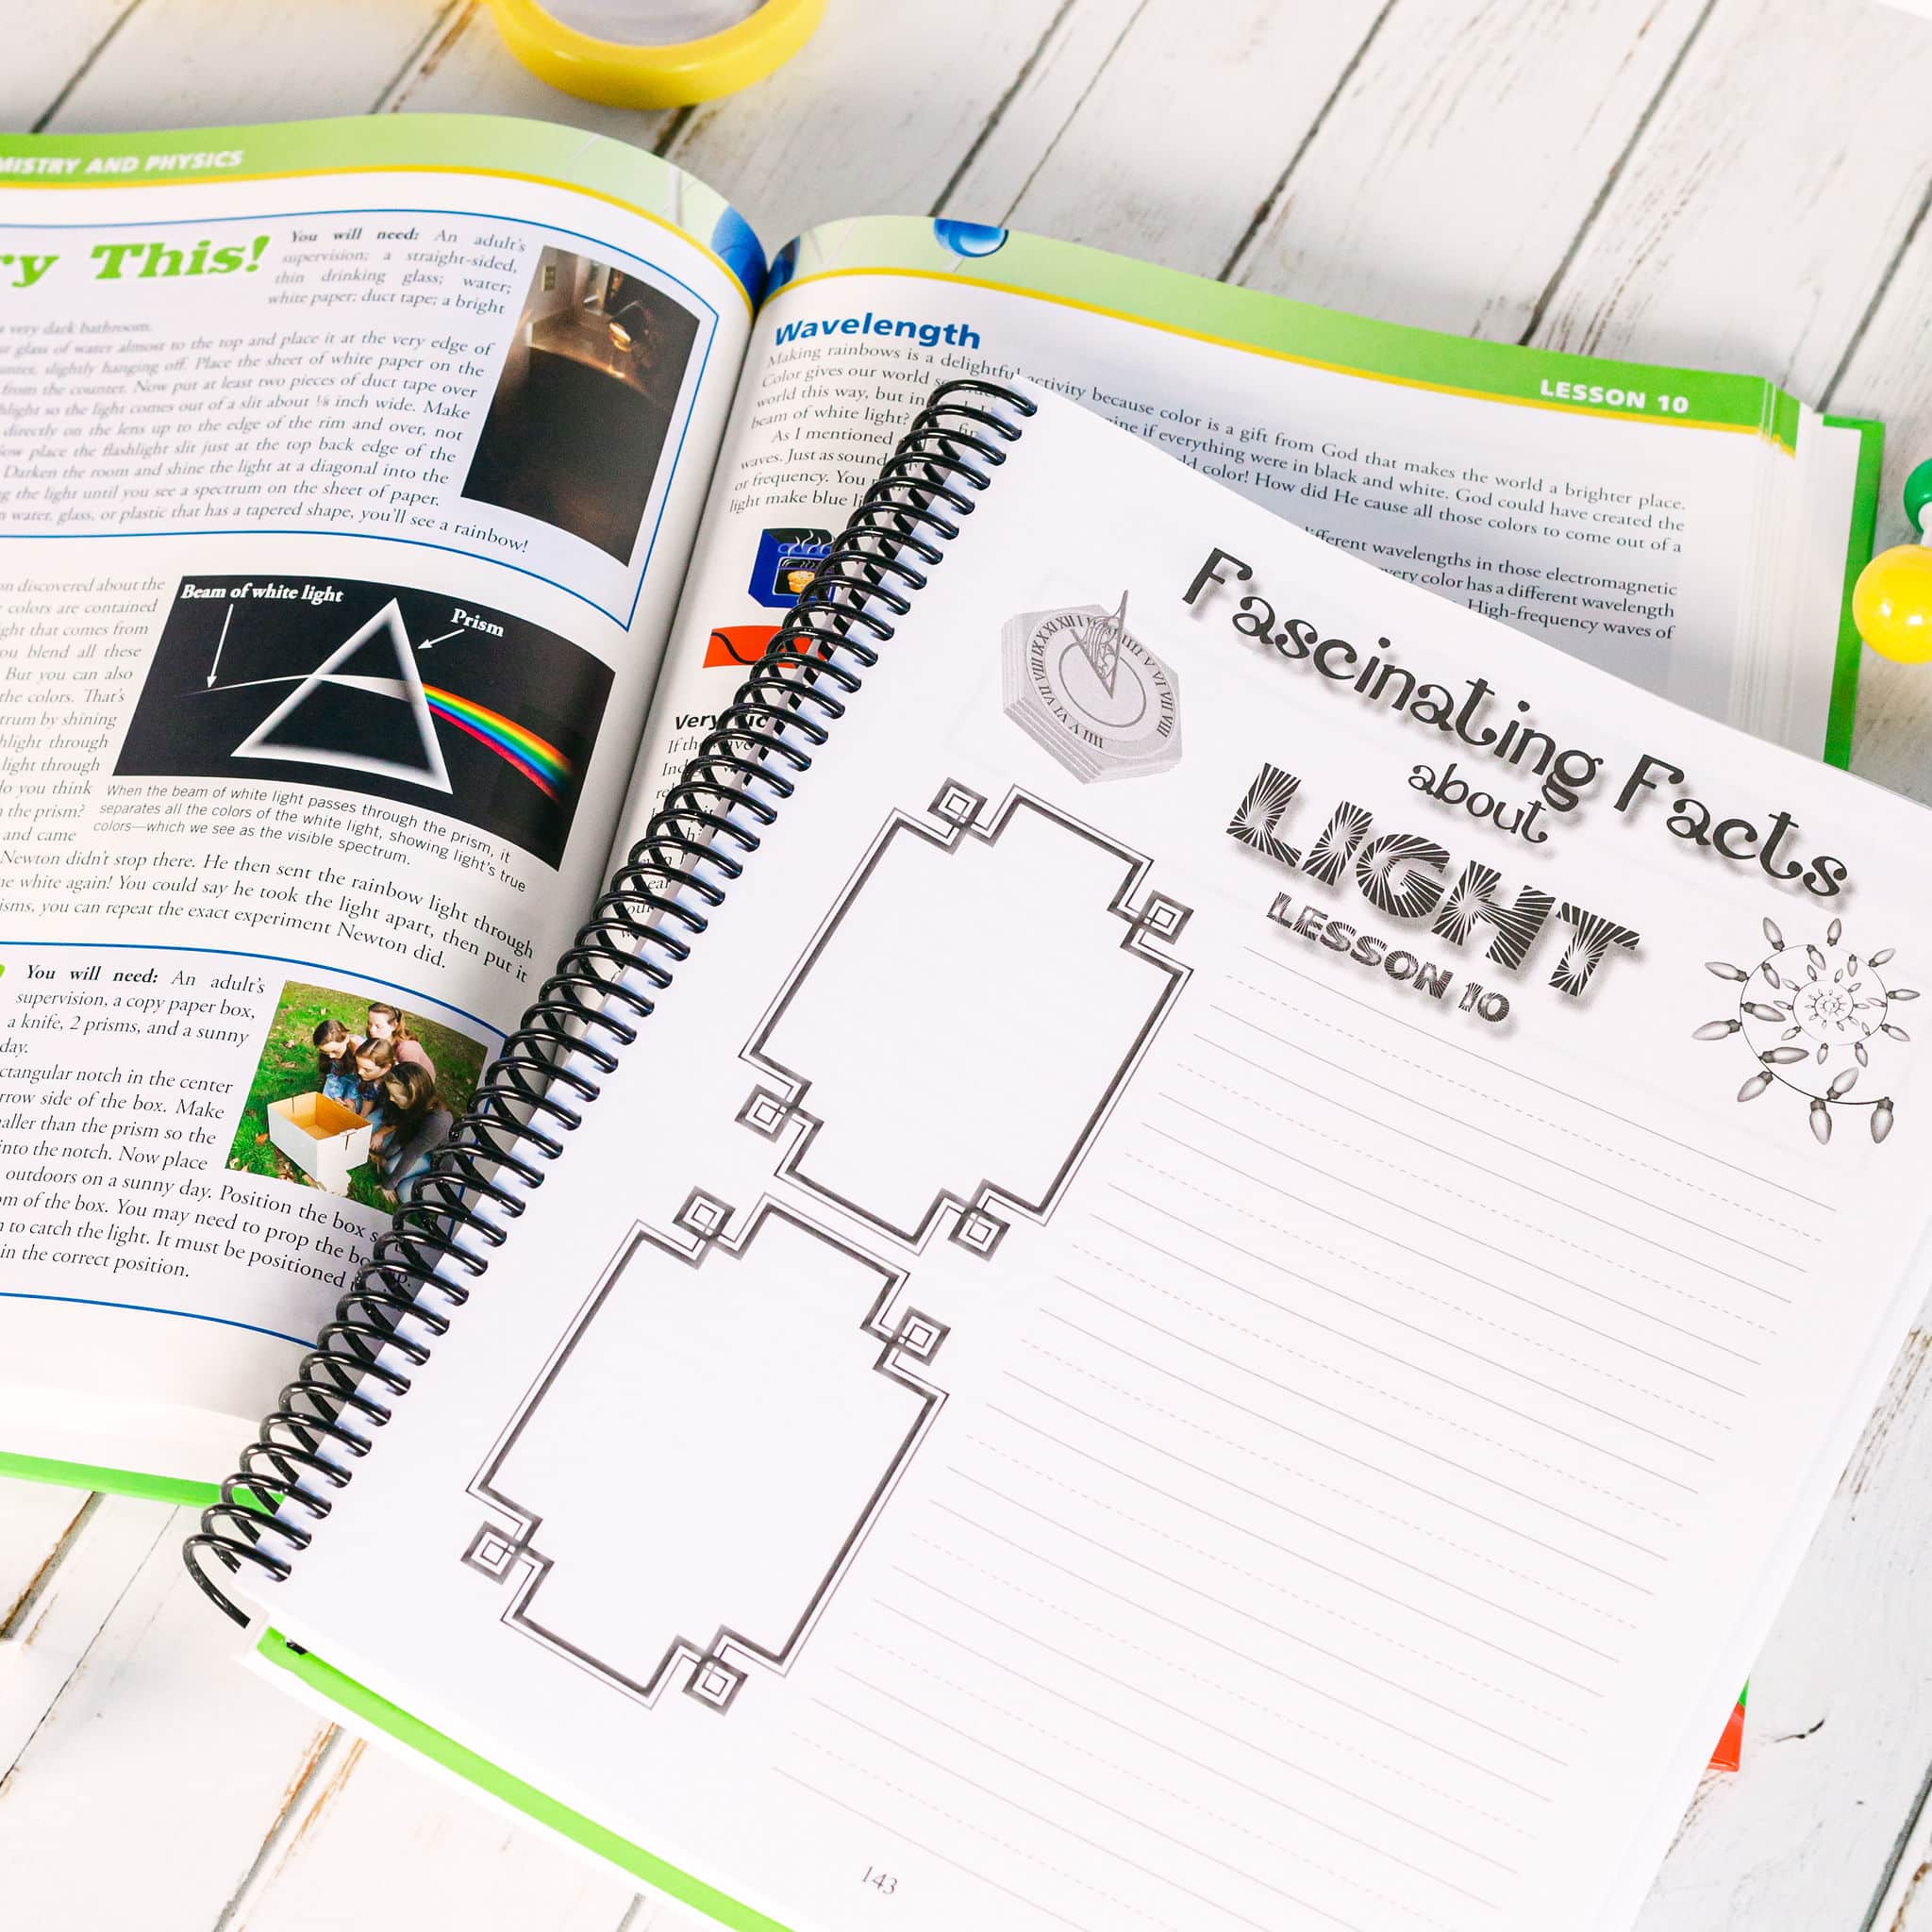 MISTRY AND PHYSICS
ry This!
You will need: An adult's
supervision; a straight-sided,
thin drinking glass; water;
white paper; duct tape; a bright
a very dark bathroom.
glass of water almost to the top and place it at the very edge of
slightly hanging off. Place the sheet of white paper on the
from the counter. Now put at least two pieces of duct tape over
light so the light comes out of a slit about ⅛ inch wide. Make
directly on the lens up to the edge of the rim and over, not
ow place the flashlight slit just at the top back edge of the
Darken the room and shine the light at a diagonal into the
g the light until you see a spectrum on the sheet of paper.
water, glass, or plastic that has a tapered shape, you'll see a rainbow!
on discovered about the
colors are contained
ght that comes from
ou blend all these
But you can also
the colors. That's
trum by shining
hlight through
light through
do you think
the prism?
and came
Beam of white light
Prism
When the beam of white light passes through the prism, it
separates all the colors of the white light, showing light's true
colors—which we see as the visible spectrum.
Newton didn't stop there. He then sent the rainbow light through
ne white again! You could say he took the light apart, then put it
isms, you can repeat the exact experiment Newton did.
You will need: An adult's
supervision, a copy paper box,
a knife, 2 prisms, and a sunny
day.
ctangular notch in the center
rrow side of the box. Make
aller than the prism so the
into the notch. Now place
outdoors on a sunny day. Position the box s
om of the box. You may need to prop the bo
to catch the light. It must be positioned
in the correct position.
LESSON 10
Wavelength
Making rainbows is a delightful activity because color is a gift from God that makes the world a brighter place.
Color gives our world s ine if everything were in black and white. God could have created the
world this way, but in d color! How did He cause all those colors to come out of a
beam of white light?
As I mentioned fferent wavelengths in those electromagnetic
waves. Just as sound very color has a different wavelength
or frequency. You High-frequency waves of
light make blue li
Very
If the wave
Fascinating Facts
about
LIGHT
LESSON 10
143